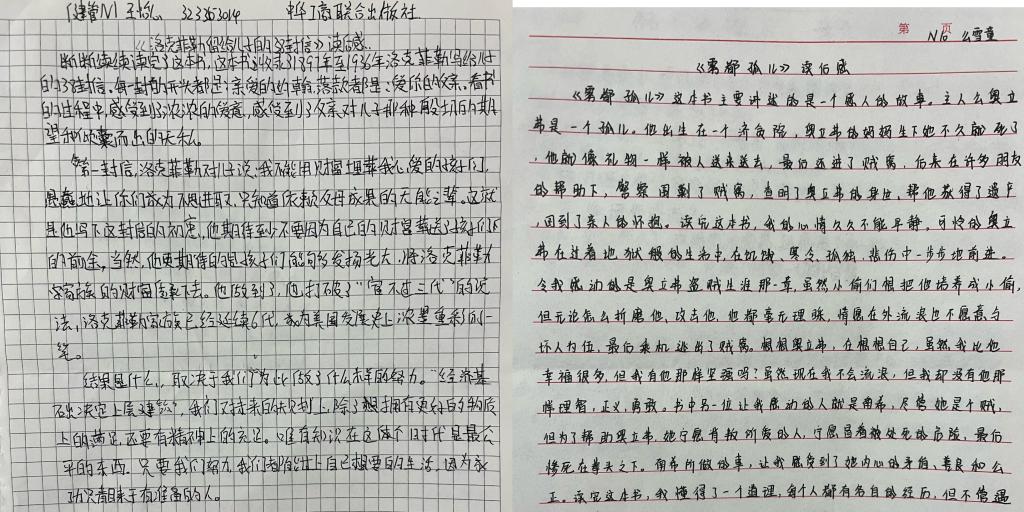 中华工商联合出版社
《洛克菲勒留给儿子的38封信》读后感
断断续续读完了这本书,这本书收录1897年至1936年洛克菲勒写给儿子
的38封信。每一封的开头都是:亲爱的约翰,落款都是:爱你的父亲。看书
的过程中,感受到了浓浓的爱意,感受到了父亲对儿子那种殷切的期
望和
第一封信,洛克菲勒对儿子说:我不能用财富埋葬我心爱的孩子们,
愚蠢地让你们成为不思进取、只知道依赖父母成果的无能之辈。这就
是他写下这封信的初衷,他期待至少不要因为自己的财富葬送了孩子们
的前途。当然,他更期待的是孩子们能够发扬光大,将洛克菲勒
家族的财富传承下去。他做到了,他打破了“富不过三代”的说
法,洛克菲勒家族已经延续6代,成为美国发展史上浓墨重彩的一
笔。
结果是什么,取决于我们为此做了什么样的努力。“经济基
础决定上层建筑”,我们又持来的规划上,除了想拥有更好的物质
上的满足,还要有精神上的充足。唯有知识在这个时代是最公
平的东西。只要我们努力,我们都能过上自己想要的生活,因为成
功只青睐于有准备的人。
第 页
N10 么雪童
《雾都孤儿》读后感
《雾都孤儿》这本书主要讲述的是一个感人的故事。主人么奥立
弗是一个孤儿。他出生在一个济贫院,奥立弗的妈妈生下他不久就死了
,他就像礼物一样被人送来送去,最后还进了贼窝,后来在许多朋友
的帮助下,警察围剿了贼窝,查明了奥立弗的身世,帮他获得了遗产
,回到了亲人的怀抱。读完这本书,我的心情久久不能平静。可怜的奥立
弗在过着地狱般的生活中,在饥饿、寒冷、孤独、悲伤中一步步地前进。
令我感动的是奥立弗盗贼生涯那一章,虽然小偷们很把他培养成小偷,
但无论怎么折磨他、攻击他,他都毫无理睬,情愿在外流浪也不愿意与
坏人为伍,最后乘机逃出了贼窝。想想奥立弗,在想想自己,虽然我比他
幸福很多,但我有他那样坚强吗?虽然现在我不会流浪,但我却没有他那
样理智,正义,勇敢。书中另一位让我感动的人就是南希,尽管她是个贼,
但为了帮助奥立弗,她宁愿背叛所爱的人,宁愿冒着被处死的危险,最后
惨死在拳头之下。南希所做的事,让我感受到了她内心的矛盾、善良和公
正。读完这本书,我懂得了一个道理,每个人都有各自的经历,但不管遇